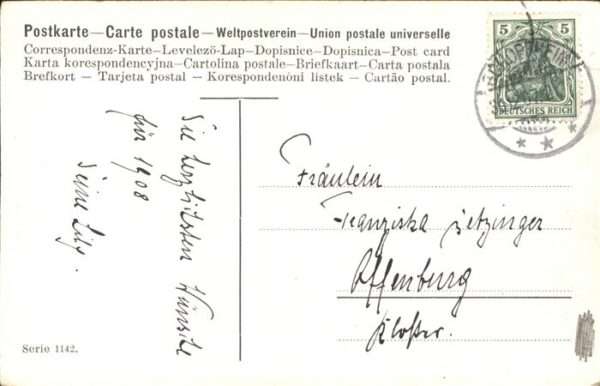 Postkarte—Carte postale—Weltpostverein—Union postale universelle
Correspondenz-Karte—Levelező-Lap—Dopisnice—Dopisnica—Post card
Karta korespondencyjna—Cartolina postale—Briefkaart—Carta postala
Brefkort — Tarjeta postal — Korespondenòni listek — Cartão postal.
5 5
DEUTSCHES REICH
Die herzlichsten Wünsche
für 1908
Deine
Fräulein
Franziska Jetzinger
Offenburg
Kloster.
Serie 1142.